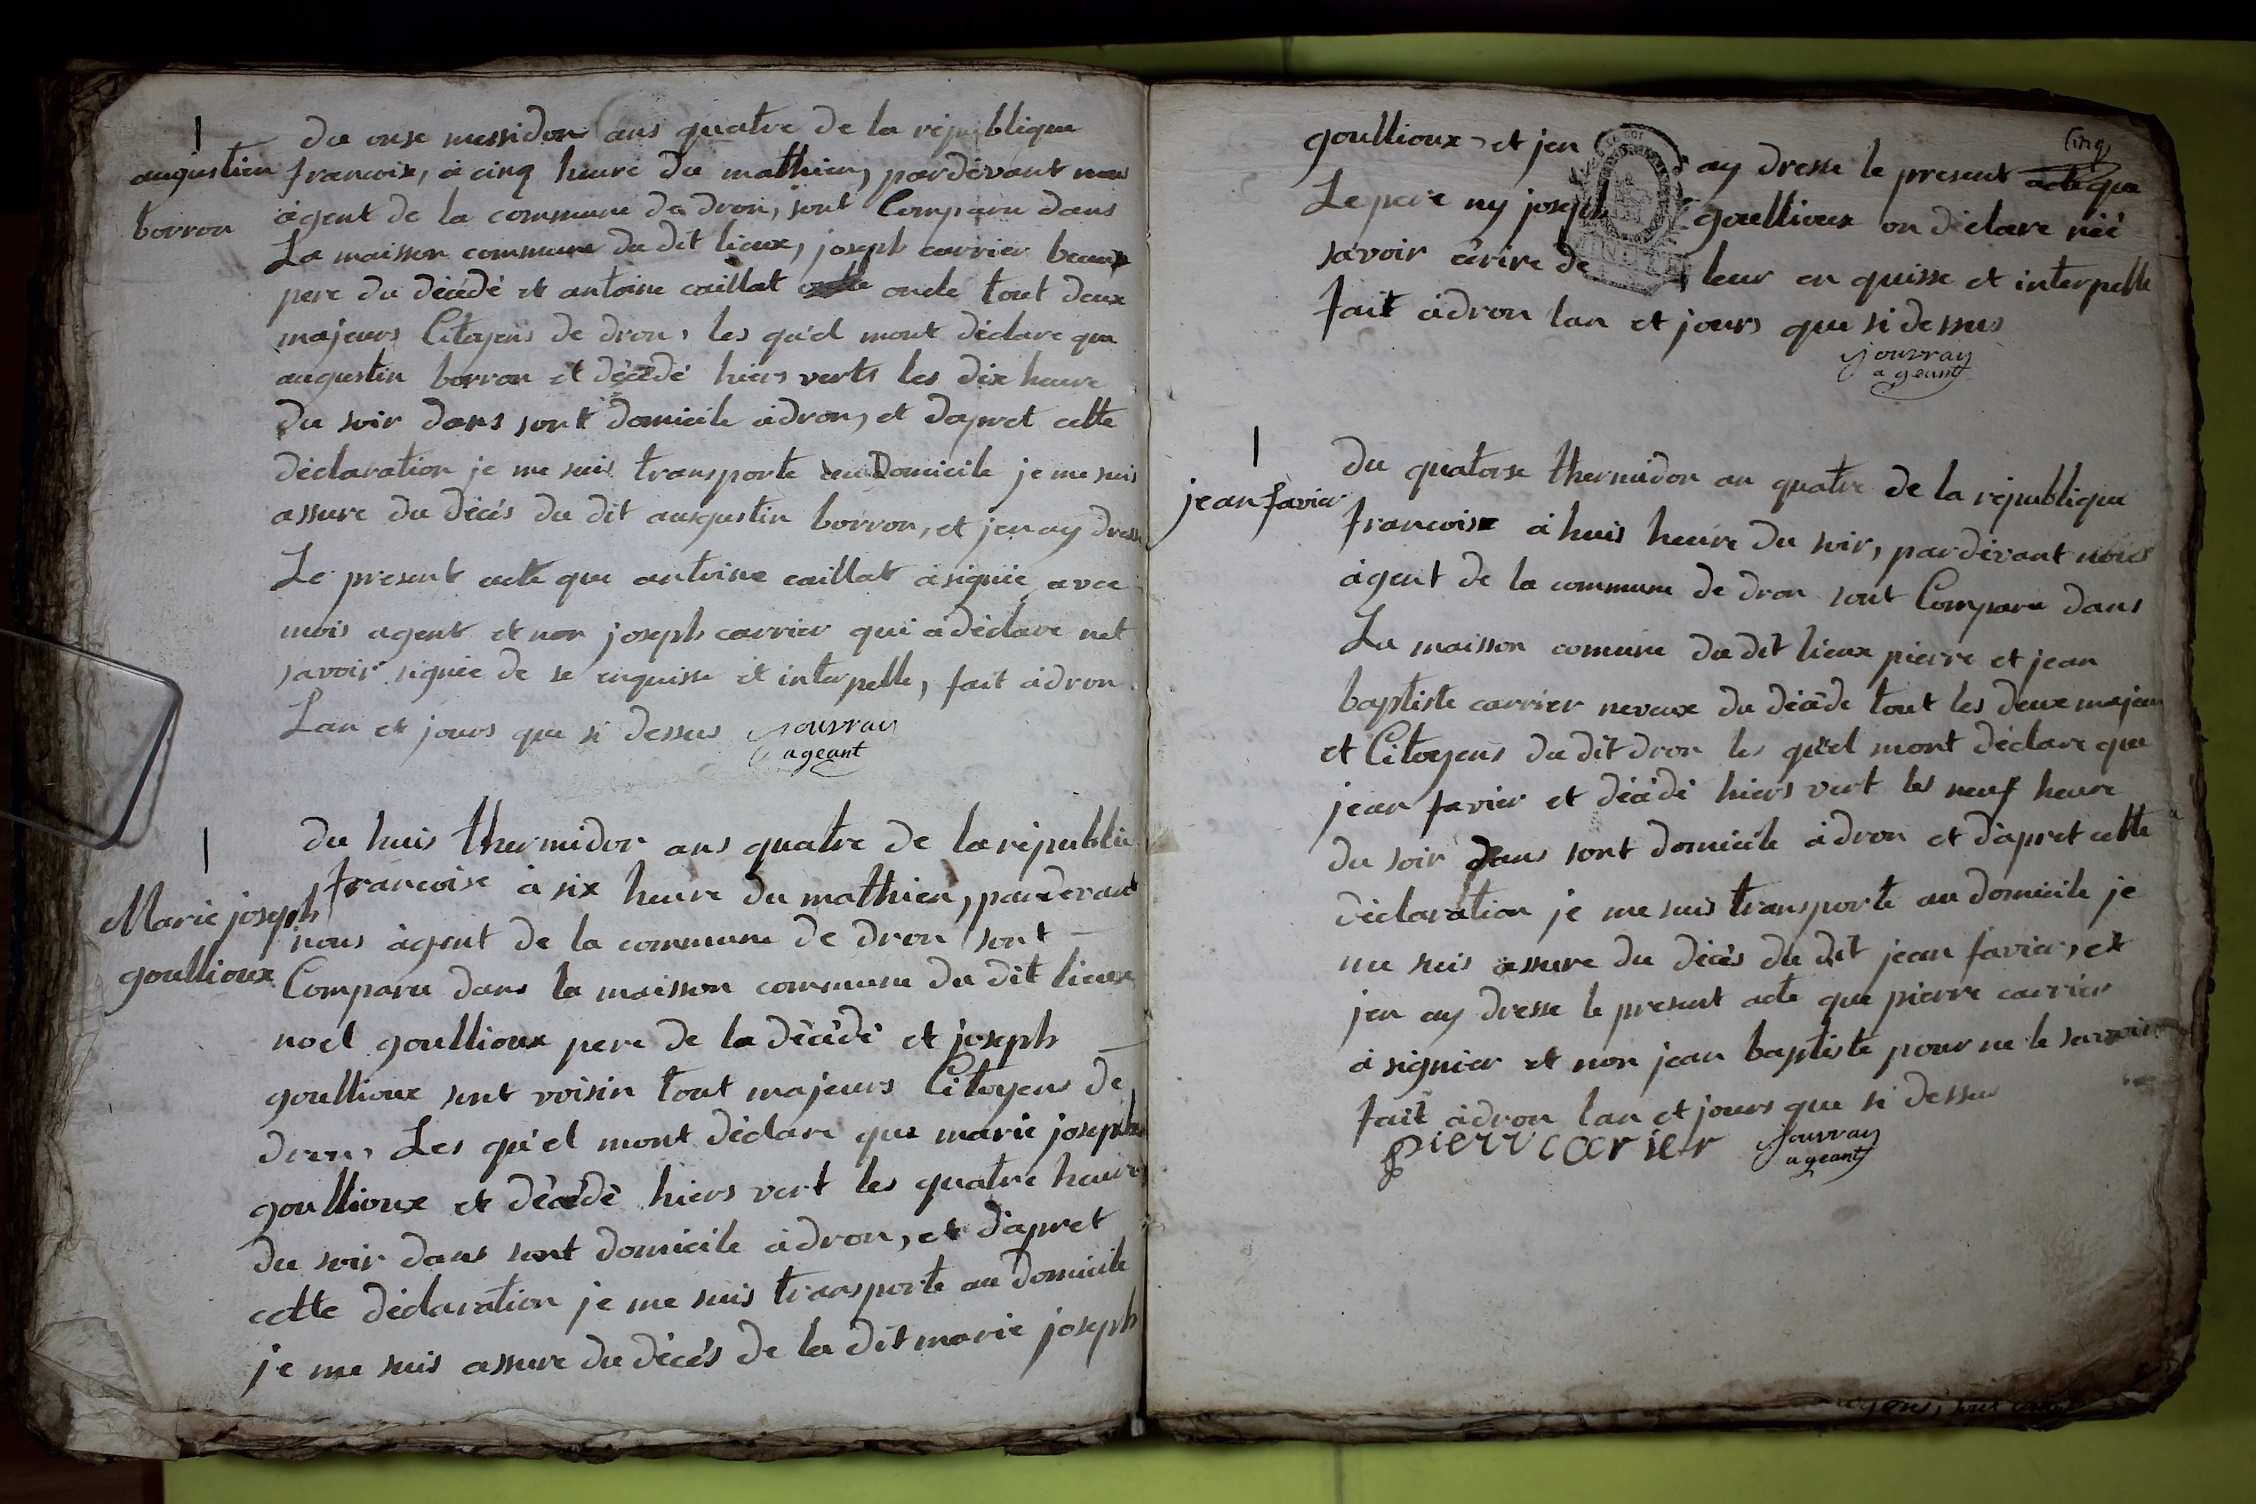 augustien
borron
du onse messidor ans quatre de la republique
francoise, à cinq heure du mathien, pardevant nous
àgent de la commune de dron, sont Comparu dans
La maison commune du dit lieux, joseph carrier beaux
pere du décédé et antoine caillat oncle tout deux
majeurs Citoyens de dron, les qu'el mont déclare que
augustin borron et décédé hiers verts les dix heure
du soir dans sont domicile à dron, et dapret cette
déclaration je me suis transporte au Domicile je me suis
assure du décés du dit augustin borron, et jen ay dresse
Le present acte que antoine caillat à signie avec
mois agent et non joseph carrier qui à déclare net
savoir signée de se enquisse et interpelle, fait à dron
Lan et jours que si dessus jouvray
ageant
Marie joseph
goullioux
du huis thermidor ans quatre de la republi
francoise à six heure du mathien, pardevant
nous àgent de la commune de dron sont
Comparu dans la maison commune du dit lieux
noel goullioux pere de la décédé et joseph
goullioux sont voisin tout majeurs Citoyens de
dron, Les qu'el mont déclare que marie joseph
goullioux et décédé hiers vert les quatre heure
du soir dans sont domicile à dron, et d'apret
cette déclaration je me suis transporte au domicile
je me suis assure du décés de la dit marie joseph
Cinq
goullioux, et jen ay dresse le present acte que
Le pere ny joseph goullioux on déclare néé
savoir ècrire de leur en quisse et interpelle
fait à dron lan et jours que si dessus
jouvray
ageant
jean favier
du quatorse thermidor an quatre de la république
francoise à huis heure du soir, pardevant nous
àgent de la commune de dron sont Comparu dans
La maison comune du dit lieux pierre et jean
baptiste carrier neveux du décéde tout les deux majeur
et Citoyens du dit dron les qu'el mont déclare que
jean favier et décédé hiers vert les neuf heure
du soir dans sont domicile à dron et d'apret cette
déclaration je me suis transporte au domicile je
me suis assure du décés du dit jean favier, et
jen ay dresse le present acte que pierre carrier
à signier et non jean baptiste pour ne le savoir
fait à dron lan et jours que si dessu
pierr carier jouvray
ageant